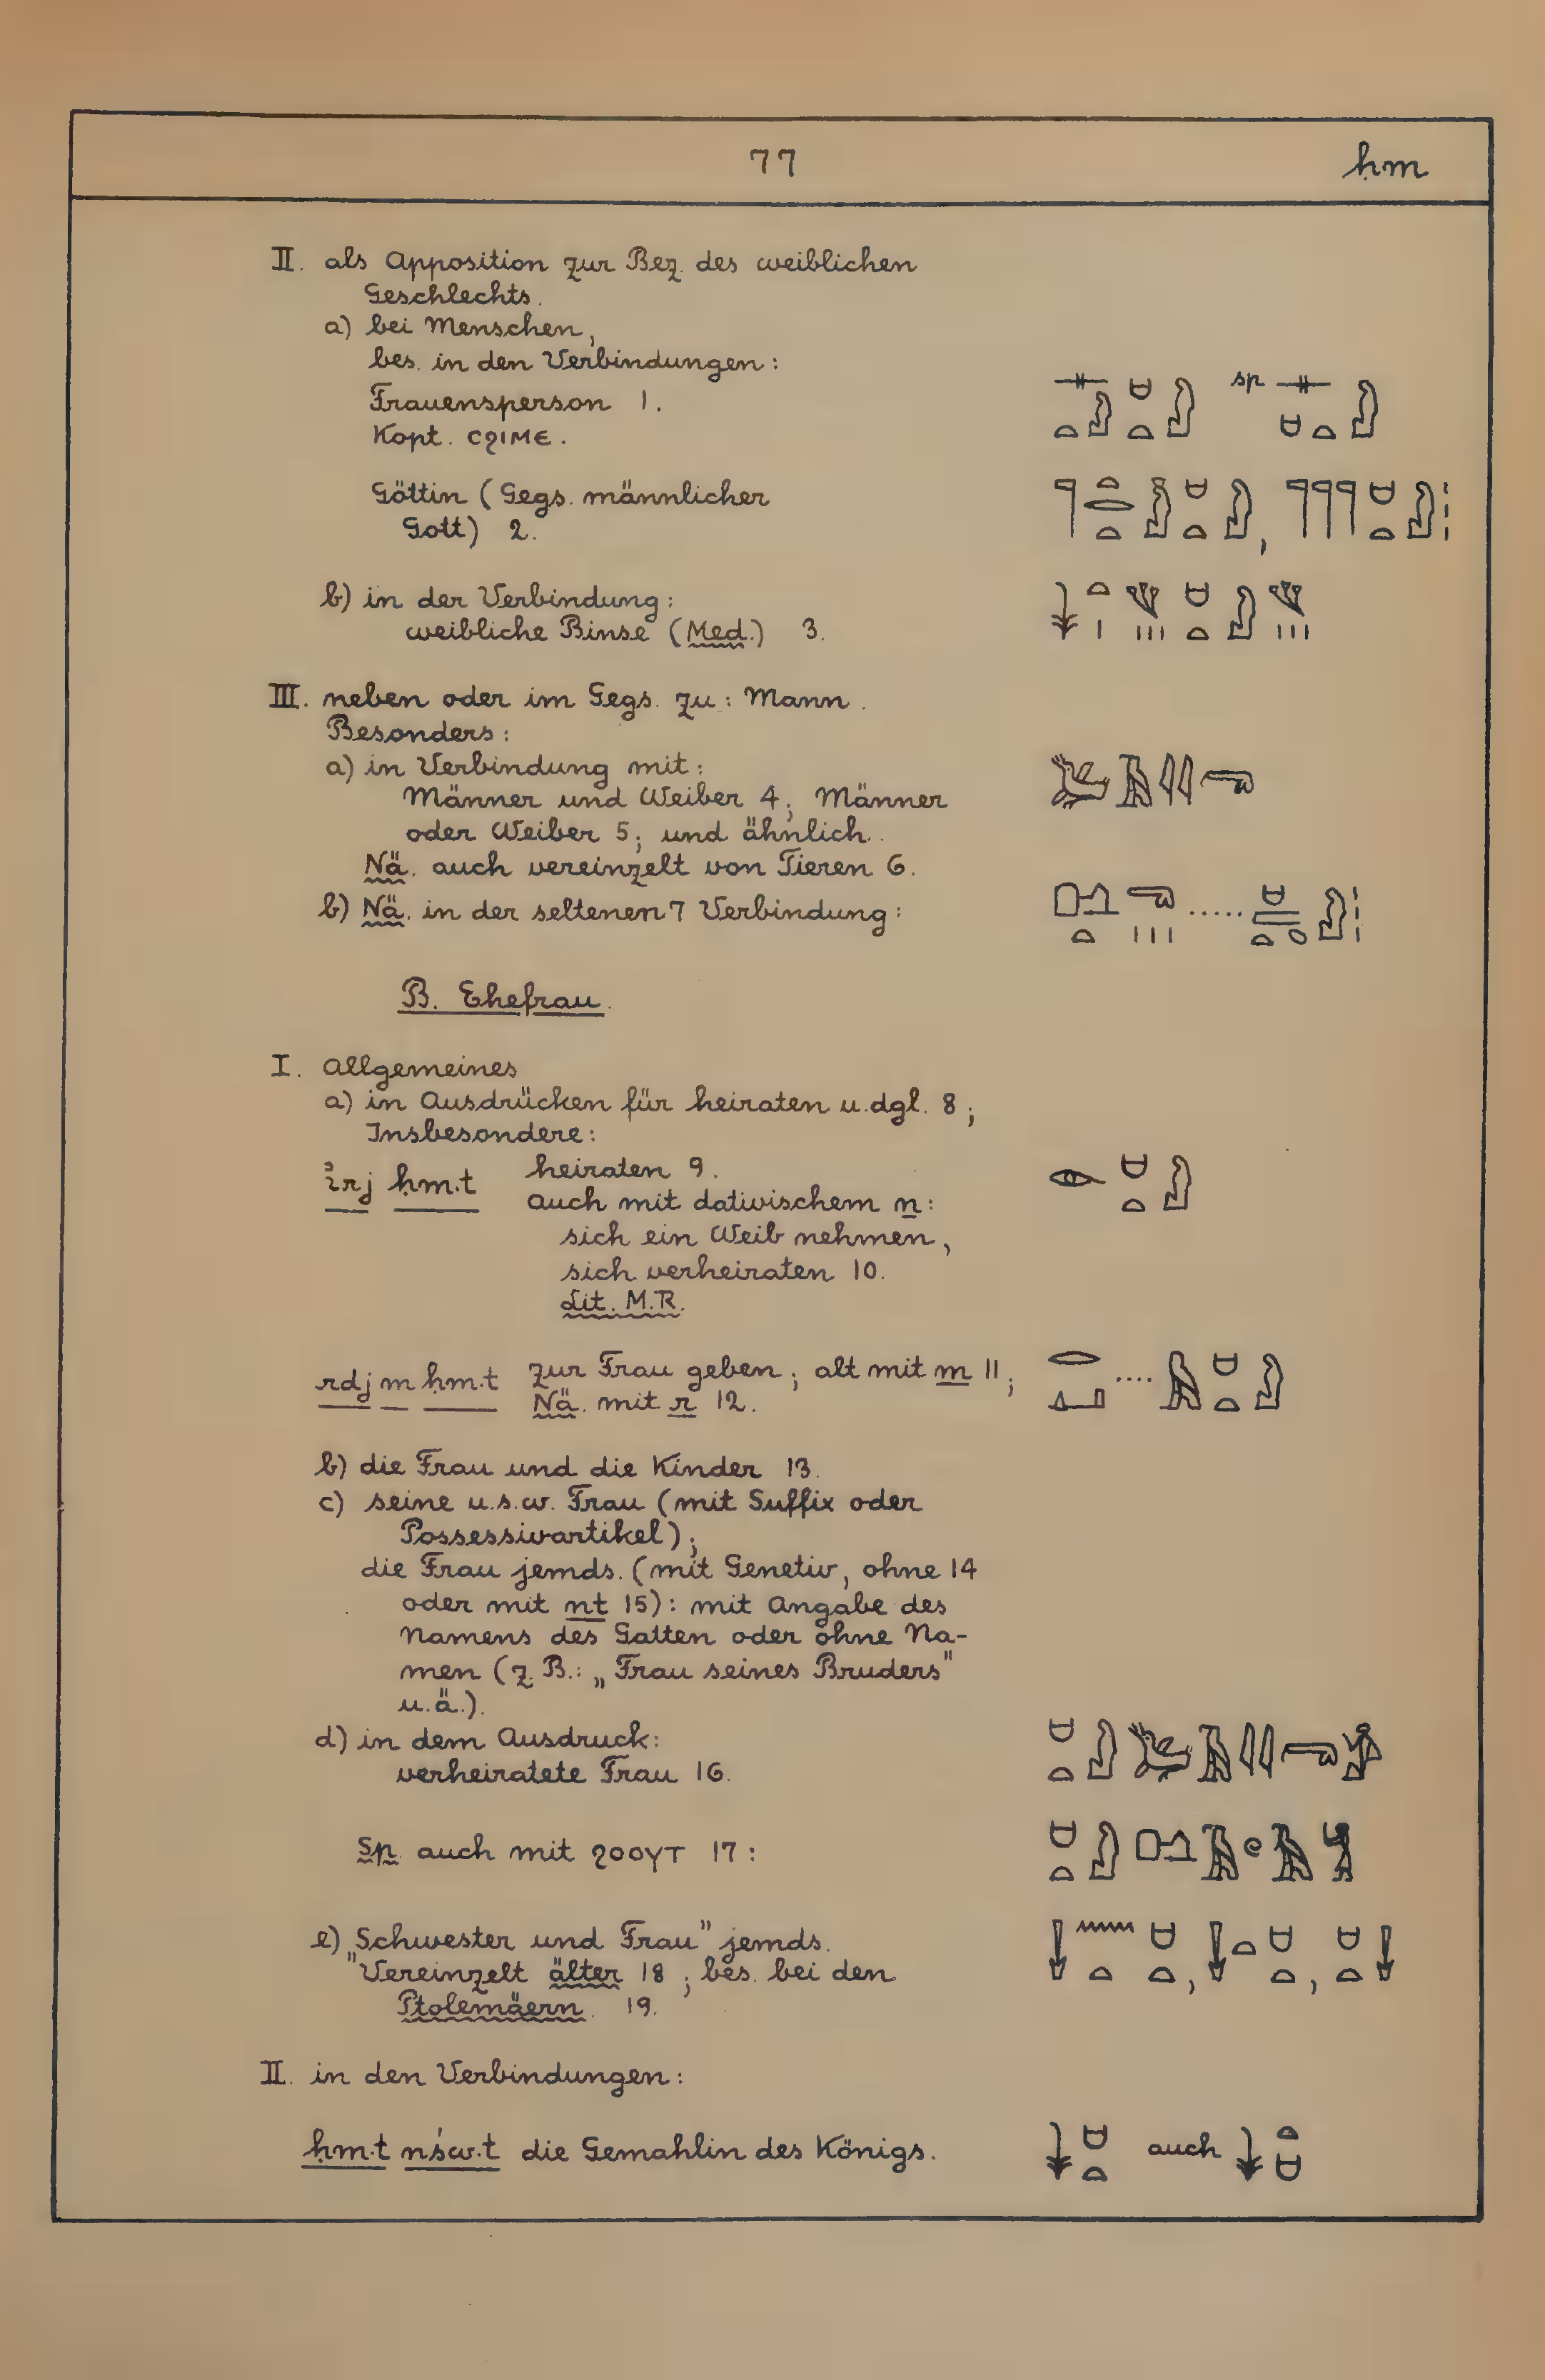 77
ḥm
II. als Apposition zur Bez. des weiblichen
Geschlechts.
a) bei Menschen,
bes. in den Verbindungen:
Frauensperson 1.
sp
Kopt. ⲥϩⲓⲙⲉ.
Göttin (Gegs. männlicher
Gott) 2.
b) in der Verbindung:
weibliche Binse (Med.) 3.
III. neben oder im Gegs. zu: Mann.
Besonders:
a) in Verbindung mit:
Männer und Weiber 4; Männer
oder Weiber 5; und ähnlich.
Nä. auch vereinzelt von Tieren 6.
b) Nä. in der seltenen 7 Verbindung:
B. Ehefrau.
I. Allgemeines
a) in Ausdrücken für heiraten u. dgl. 8;
Insbesondere:
irj ḥm.t heiraten 9.
auch mit dativischem n:
sich ein Weib nehmen,
sich verheiraten 10.
Lit. M.R.
rdj m ḥm.t zur Frau geben; alt mit m 11;
Nä. mit r 12.
b) die Frau und die Kinder 13.
c) seine u.s.w. Frau (mit Suffix oder
Possessivartikel);
die Frau jemds. (mit Genetiv, ohne 14
oder mit nt 15): mit Angabe des
Namens des Gatten oder ohne Na-
men (z.B.: „Frau seines Bruders"
u.ä.).
d) in dem Ausdruck:
verheiratete Frau 16.
Sp. auch mit ϩⲟⲟⲩⲧ 17:
e) „Schwester und Frau" jemds.
Vereinzelt älter 18; bes. bei den
Ptolemäern. 19.
II. in den Verbindungen:
ḥm.t nśw.t die Gemahlin des Königs.
auch